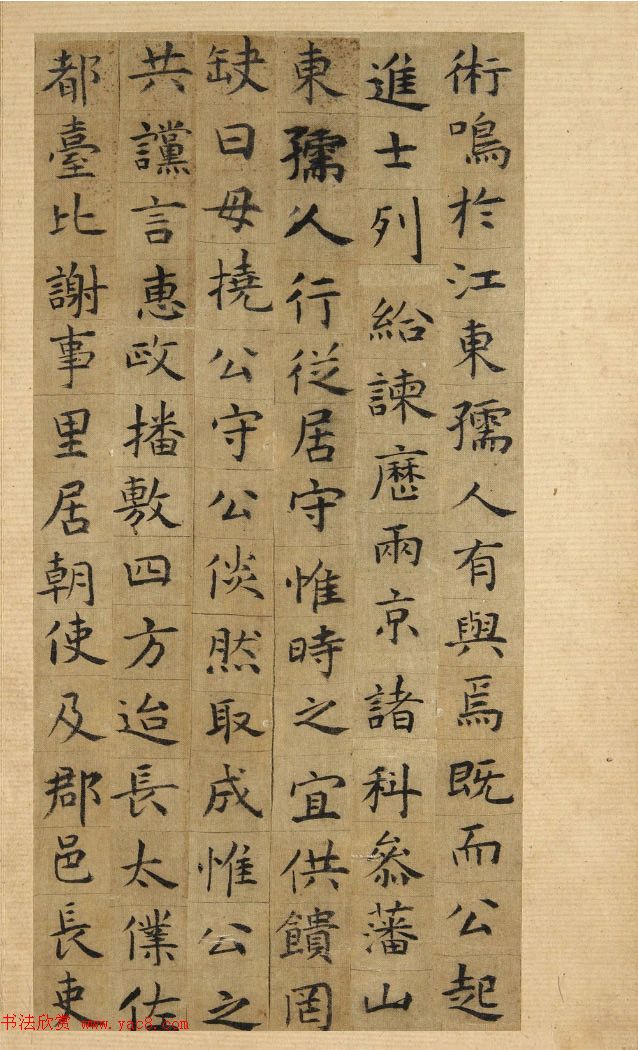 術鳴於江東孺人有與焉既而公起
進士列給諫歷兩京諸科叅藩山
東孺人行從居守惟時之宜供饋罔
缺日毋撓公守公倓然取成惟公之
共讜言惠政播敷四方迨長太僕佐
都臺比謝事里居朝使及郡邑長吏
书法欣赏 www.yac8.com